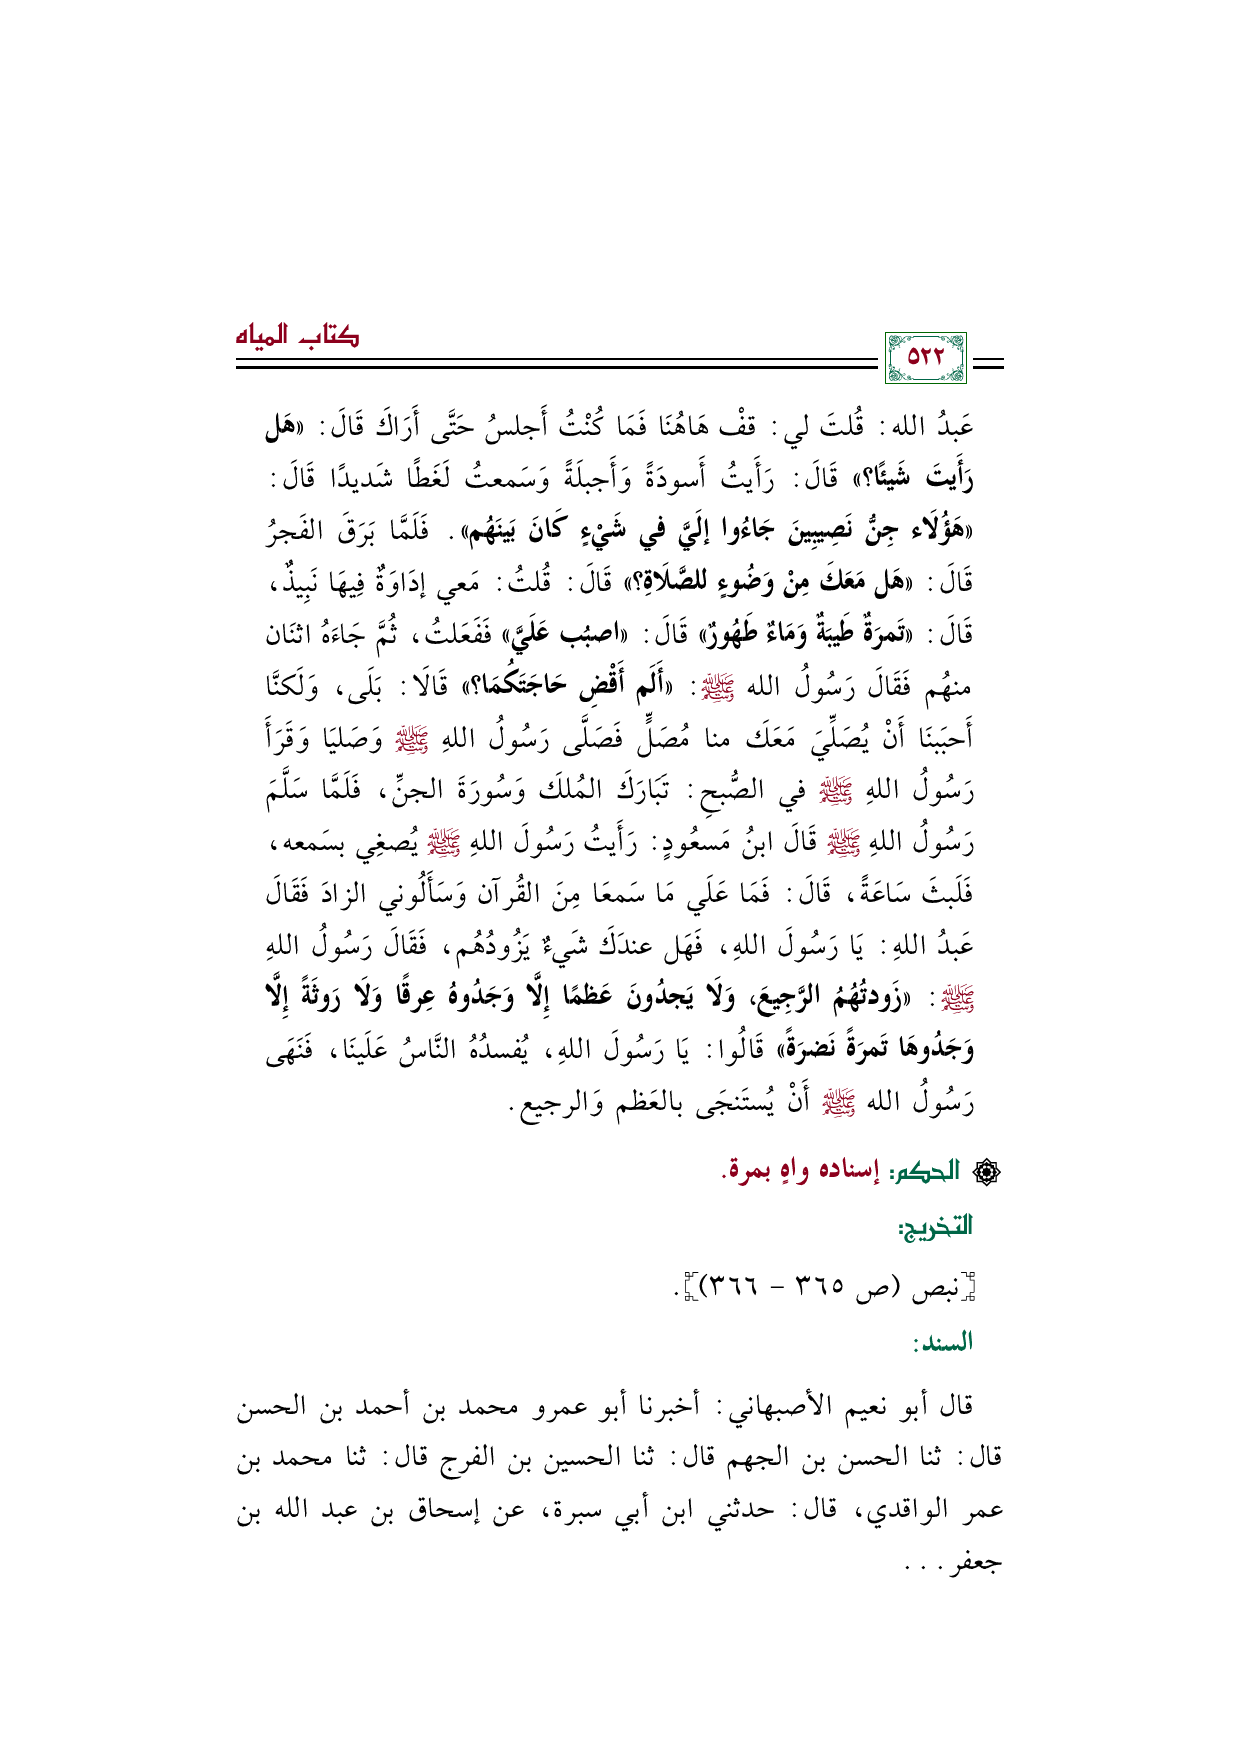 كتاب المياه
٥٢٢
عَبدُ الله: قُلتَ لي: قفْ هَاهُنَا فَمَا كُنْتُ أَجلسُ حَتَّى أَرَاكَ قَالَ: «هَل
رَأَيتَ شَيئًا؟» قَالَ: رَأَيتُ أَسودَةً وَأَجبلَةً وَسَمعتُ لَغَطًا شَديدًا قَالَ:
«هَؤُلَاء جِنُّ نَصِيبِينَ جَاءُوا إلَيَّ في شَيْءٍ كَانَ بَينَهُم». فَلَمَّا بَرَقَ الفَجرُ
قَالَ: «هَل مَعَكَ مِنْ وَضُوءٍ للصَّلَاةِ؟» قَالَ: قُلتُ: مَعي إدَاوَةٌ فِيهَا نَبِيذٌ،
قَالَ: «تَمرَةٌ طَيبَةٌ وَمَاءٌ طَهُورٌ» قَالَ: «اصبُب عَلَيَّ» فَفَعَلتُ، ثُمَّ جَاءَهُ اثنَان
منهُم فَقَالَ رَسُولُ الله ﷺ: «أَلَم أَقْضِ حَاجَتَكُمَا؟» قَالَا: بَلَى، وَلَكنَّا
أَحبَبنَا أَنْ يُصَلِّيَ مَعَكَ منا مُصَلٍّ فَصَلَّى رَسُولُ اللهِ ﷺ وَصَليَا وَقَرَأَ
رَسُولُ اللهِ ﷺ في الصُّبحِ: تَبَارَكَ المُلكَ وَسُورَةَ الجنِّ، فَلَمَّا سَلَّمَ
رَسُولُ اللهِ ﷺ قَالَ ابنُ مَسعُودٍ: رَأَيتُ رَسُولَ اللهِ ﷺ يُصغِي بسَمعه،
فَلَبثَ سَاعَةً، قَالَ: فَمَا عَلَي مَا سَمعَا مِنَ القُرآن وَسَأَلُوني الزادَ فَقَالَ
عَبدُ اللهِ: يَا رَسُولَ اللهِ، فَهَل عندَكَ شَيءٌ يَزُودُهُم، فَقَالَ رَسُولُ اللهِ
ﷺ: «زَودتُهُمُ الرَّجِيعَ، وَلَا يَجدُونَ عَظمًا إِلَّا وَجَدُوهُ عِرقًا وَلَا رَوثَةً إِلَّا
وَجَدُوهَا تَمرَةً نَضرَةً» قَالُوا: يَا رَسُولَ اللهِ، يُفسدُهُ النَّاسُ عَلَينَا، فَنَهَى
رَسُولُ الله ﷺ أَنْ يُستَنجَى بالعَظم وَالرجيع.
الحكم: إسناده واهٍ بمرة.
التخريج:
[نبص (ص ٣٦٥ - ٣٦٦)].
السند:
قال أبو نعيم الأصبهاني: أخبرنا أبو عمرو محمد بن أحمد بن الحسن
قال: ثنا الحسن بن الجهم قال: ثنا الحسين بن الفرج قال: ثنا محمد بن
عمر الواقدي، قال: حدثني ابن أبي سبرة، عن إسحاق بن عبد الله بن
جعفر...